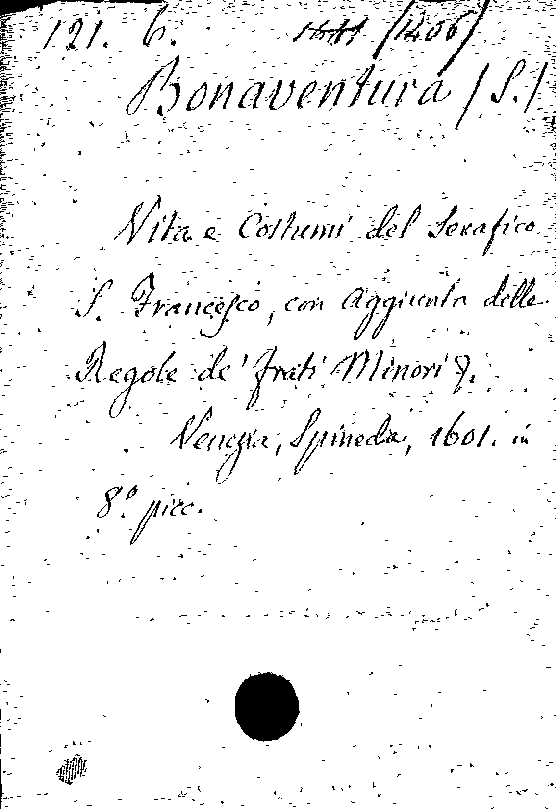 121. 6. (1406)
Bonaventura (S.)
Vita e Costumi del Serafico
S. Francesco, con Aggiunta delle
Regole de' frati Minori &.
Venezia, Spineda, 1601. in
8º picc.